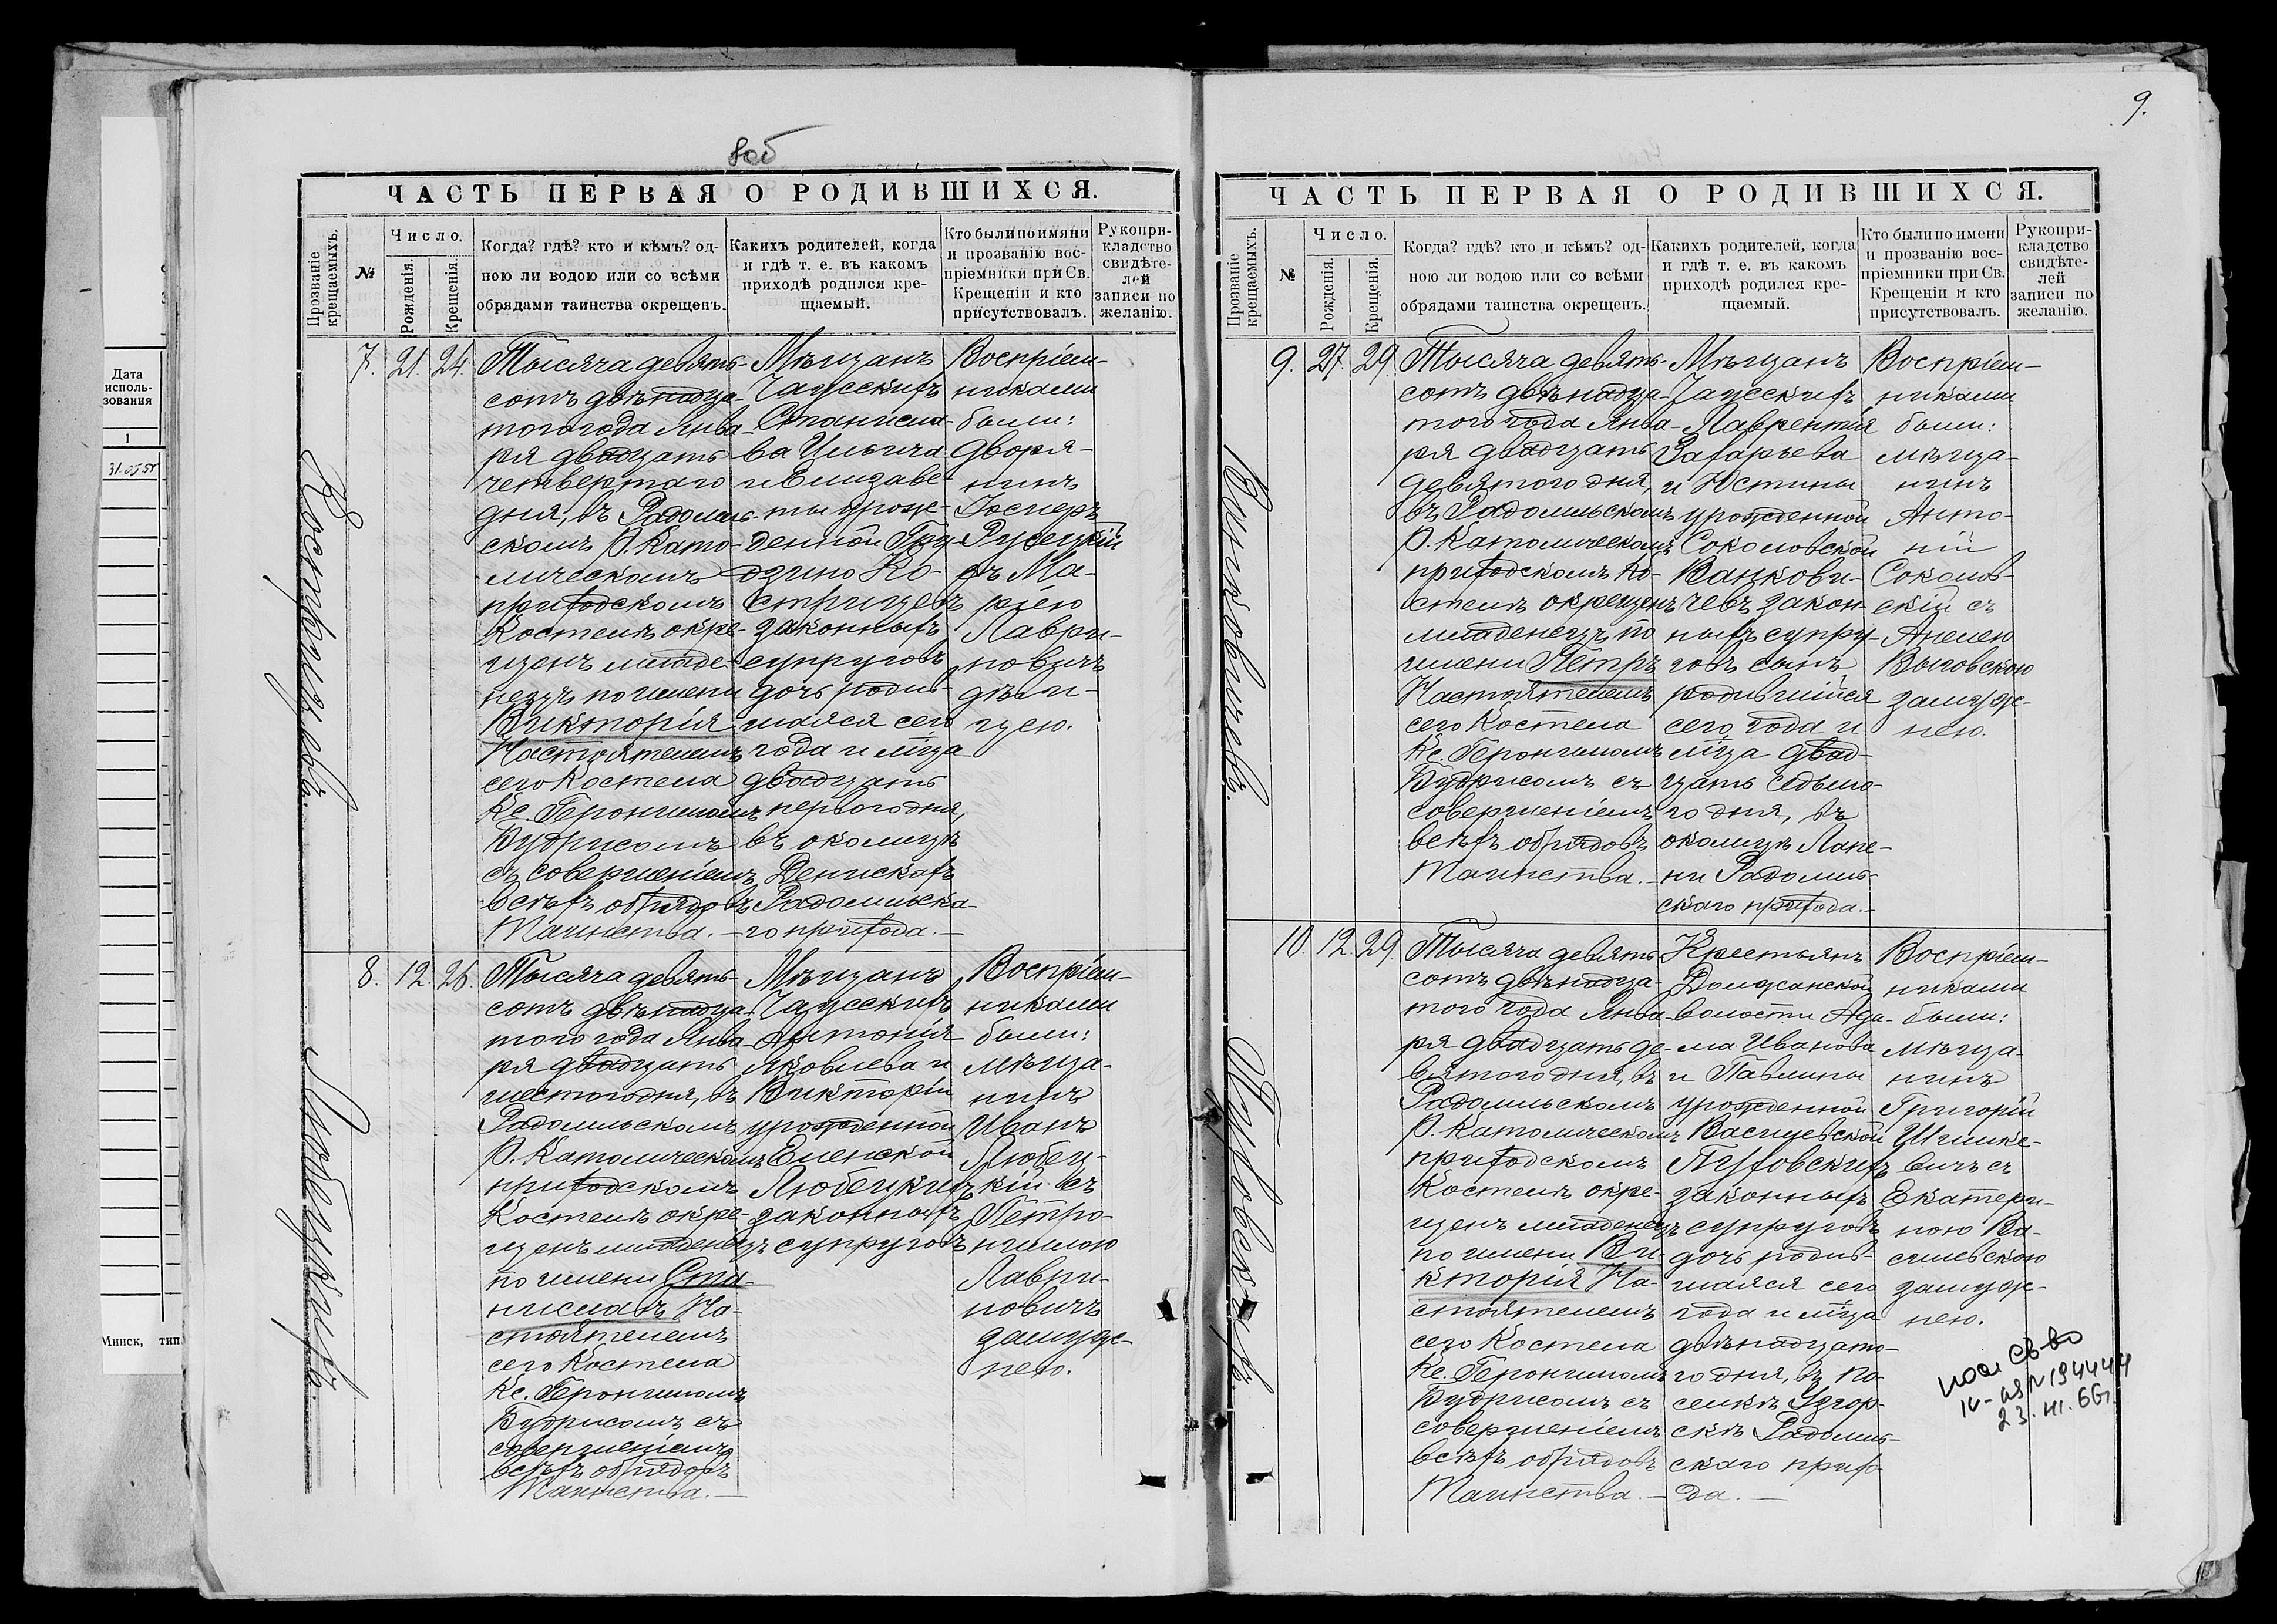 8об
ЧАСТЬ ПЕРВАЯ О РОДИВШИХСЯ.
Прозваніе крещаемыхъ.
№
Число.
Рожденія.
Крещенія.
Когда? гдѣ? кто и кѣмъ? од-
ною ли водою или со всѣми
обрядами таинства окрещенъ.
Какихъ родителей, когда
и гдѣ т. е. въ какомъ
приходѣ родился кре-
щаемый.
Кто были по имяни
и прозванію вос-
пріемники при Св.
Крещеніи и кто
присутствовалъ.
Рукопри-
кладство
свидѣте-
лей
записи по
желанію.
7.
21.
24.
Тысяча девять-
сотъ двѣнадца-
того года Янва-
ря двадцать
четвертаго
дня, въ Радомль-
скомъ Р. Като-
лическомъ
приходскомъ
Костелѣ окре-
щенъ младе-
нецъ по имени
Викторія
Настоятелемъ
сего Костела
Кс. Геронимомъ
Будрисомъ
съ совершеніемъ
всѣхъ обрядовъ
Таинства.—
Мѣщанъ
Чаусскихъ
Станисла-
ва Ильича
и Елизаве-
ты урож-
денной Гру-
дзино Ко-
стрицевъ
законныхъ
супруговъ
дочь родив-
шаяся сего
года и м‑ца
двадцать
перваго дня,
въ околицѣ
Денисахъ
Радомльска-
го прихода.—
Воспріем-
никами
были:
Дворя-
нинъ
Іосифъ
Русецкій
съ Ма-
ріею
Лаври-
новичъ
дѣви-
цею.
8.
12.
26.
Тысяча девять-
сотъ двѣнадца-
того года Янва-
ря двадцать
шестого дня, въ
Радомльскомъ
Р. Католическомъ
приходскомъ
Костелѣ окре-
щенъ младенецъ
по имени Ста-
ниславъ На-
стоятелемъ
сего Костела
Кс. Геронимомъ
Будрисомъ съ
совершеніемъ
всѣхъ обрядовъ
Таинства.—
Мѣщанъ
Чаусскихъ
Антонія
Яковлева и
Викторіи
урожденной
Еленской
Любецкихъ
законныхъ
супруговъ
Воспріем-
никами
были:
мѣща-
нинъ
Иванъ
Любец-
кій съ
Петро-
нилою
Лаври-
новичъ
замуж-
нею.
Любецкихъ.
9.
ЧАСТЬ ПЕРВАЯ О РОДИВШИХСЯ.
Прозваніе крещаемыхъ.
№
Число.
Рожденія.
Крещенія.
Когда? гдѣ? кто и кѣмъ? од-
ною ли водою или со всѣми
обрядами таинства окрещенъ.
Какихъ родителей, когда
и гдѣ т. е. въ какомъ
приходѣ родился кре-
щаемый.
Кто были по имени
и прозванію вос-
пріемники при Св.
Крещеніи и кто
присутствовалъ.
Рукопри-
кладство
свидѣте-
лей
записи по
желанію.
9.
27.
29.
Тысяча девять-
сотъ двѣнадца-
того года Янва-
ря двадцать
девятого дня,
въ Радомльскомъ
Р. Католическомъ
приходскомъ Ко-
стелѣ окрещенъ
младенецъ по
имени Петръ
Настоятелемъ
сего Костела
Кс. Геронимомъ
Будрисомъ съ
совершеніемъ
всѣхъ обрядовъ
Таинства.—
Мѣщанъ
Чаусскихъ
Лаврентія
Захарьева
и Юстины
урожденной
Соколовской
Ванкови-
чевъ закон-
ныхъ супру-
говъ сынъ,
родившійся
сего года и
м‑ца двад-
цать седьмо-
го дня, въ
околицѣ Лапе-
ни Радомль-
скаго прихода.—
Воспріем-
никами
были:
мѣща-
нинъ
Анто-
ній
Соколов-
скій съ
Анелею
замуж-
нею.
10.
12.
29.
Тысяча девять-
сотъ двѣнадца-
того года Янва-
ря двадцать де-
вятого дня, въ
Радомльскомъ
Р. Католическомъ
приходскомъ
Костелѣ окре-
щенъ младенецъ
по имени Ви-
кторія На-
стоятелемъ
сего Костела
Кс. Геронимомъ
Будрисомъ съ
совершеніемъ
всѣхъ обрядовъ
Таинства.—
Крестьянъ
Должанской
волости Ада-
ма Иванова
и Павлины
урожденной
Пуховскихъ
законныхъ
супруговъ
дочь родив-
шаяся сего
года и м‑ца
двѣнадцато-
го дня, въ по-
селкѣ Узгор-
скѣ Радомль-
скаго прихо-
да.—
Воспріем-
никами
были:
мѣща-
нинъ
Григорій
съ
Екатери-
ною Ва-
силевскою
замуж-
нею.
Пуховскихъ.
св-во
Дата
исполь-
зования
1
Минск, тип.